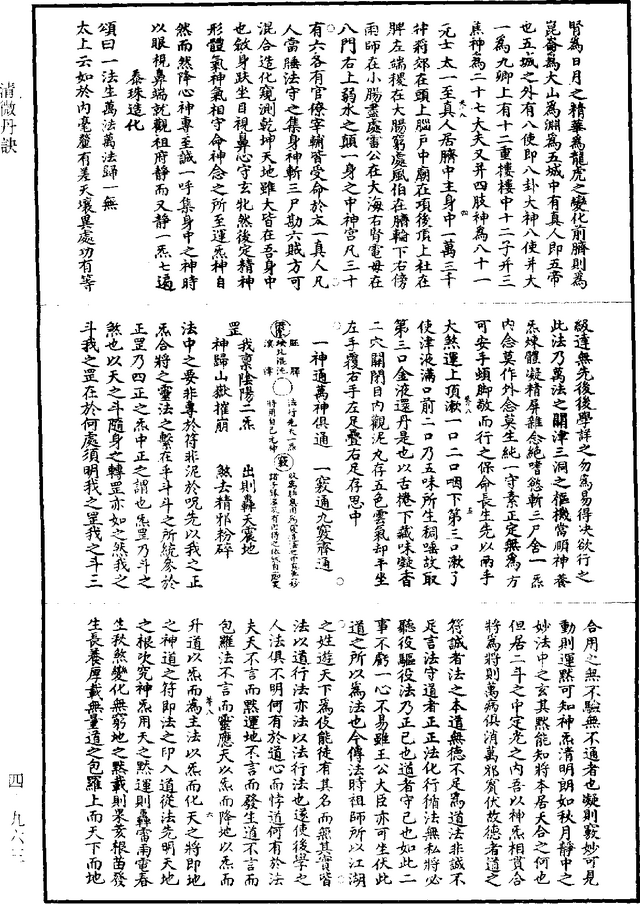 腎為日月之精華為龍虎之變化前臍則為
崑崙為大山為淵為五城中有真人即五帝
也五城之外有八使即八卦大神八使并大
一為九卿上有十二重樓樓中十二子并三
焦神為二十七大夫又并四肢神為八十一
元士太一至真人居臍中主身中一萬三千
神将宛在頭上腦戶中廟在項後頂上社在
脾左端稷在大腸窮處風伯在臍輪下右傍
雨師在小腸盡處雷公在大海右腎電母在
八門右上弱水之顛一身之中神宮凡三十
有六各有官僚宰輔皆受命於太一真人凡
人當睡法守之集身神斬三尸勘六賊方可
混合造化窺測乾坤天地雖大皆在吾身中
也斂身趺坐目視鼻心守玄牝然後定精神
形體氣神氣相守命神念之所至運炁神自
然而然降心神專至誠一呼集身中之神時
以眼視鼻端就觀祖府靜而又靜一炁七遍
泰珠造化
頌曰一法生萬法萬法歸一無
太上云如於內毫釐有差天壤異處功有等
級達無先後後學詳之勿為易得決欲行之
此法乃萬法之關津三洞之樞機當順神養
炁煉體凝精屏雜念絕嗜慾斬三尸舍一炁
內念莫作外念莫生純一守素正定無為方
可安手頓腳敬而行之保命長生先以兩手
大煞運上頂漱一口二口咽下第三口漱了
使津液滿口前二口乃五味所生稠唾故取
第三口金液還丹是也以舌捲下藏味凝香
二穴開閉目內觀泥丸存五色雲氣却平坐
左手覆右手左足疊右足存思中
一神通萬神俱通 一竅通九竅齊通
罡
我稟陰陽二炁 出則轟天震地
神歸山嶽摧崩 煞去精邪粉碎
法中之要非專於符非泥於呪先以我之正
炁合將之靈法之繫在乎斗斗之所統參於
正罡乃四正之炁中正之謂也炁罡乃斗之
煞也以天之斗隨身之轉罡亦如之然我之
斗我之罡在於何處須明我之罡我之斗三
合用之無不驗無不通者也凝則竅妙可見
動則運默可知神炁清明朗如秋月靜中之
妙法中之玄其默能知將本居天合之何也
但居二斗之中定光之內吾以神炁相貫合
將為將則萬病俱消萬邪賓伏故德者道之
符誠者法之本道無德不足為道法非誠不
足言法守道者正正法化行循法無私將必
聽役驅役法乃正已也道者守已也如此二
事不虧一心不易雖王公大臣亦可坐伏此
道之所以為法也今傳法時祖師所以江湖
之姓遊天下為伎能徒有其名而無其實皆
法以道行法亦法以法行法也還使後學之
人法俱不明何有於道心而悖道何有於法
夫天不言而默運地不言而發生道不言而
包羅法不言而靈應天以炁而降地以炁而
升道以炁而為主法以炁而化天之將即地
之神道之符即法之印入道從法先明天地
之根次究神炁用天之默運則轟雷雨電春
生秋煞變化無窮地之默載則果亥根苗發
生長養厚載無量道之包羅上而天下而地
清微丹訣
四·九六三